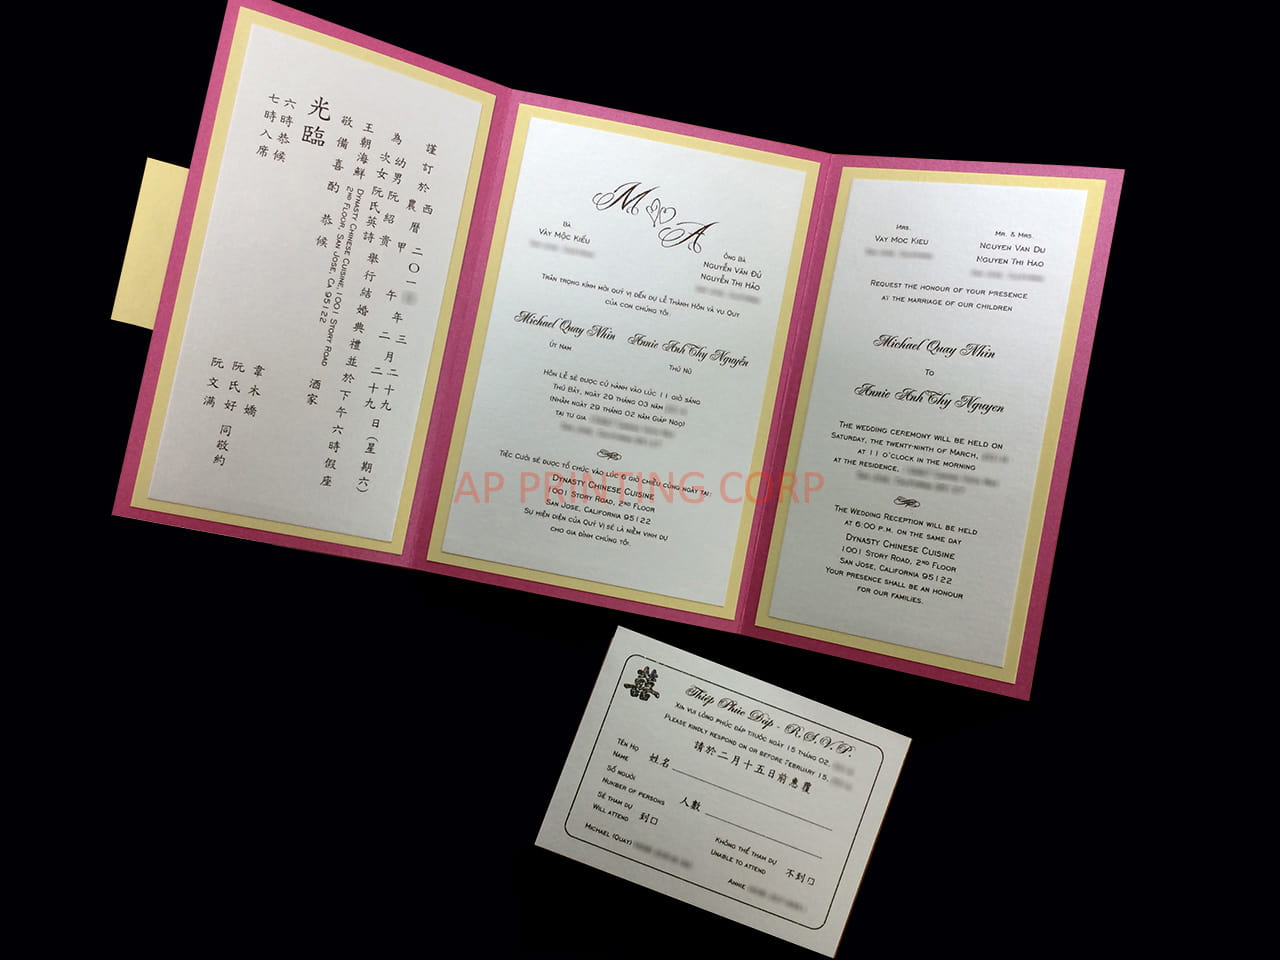 謹訂於西曆二〇一 年三月二十九日（星期六）
農曆甲午年二月二十九日
為幼男阮紹貴
次女阮氏英詩舉行結婚典禮並於下午六時假座
王朝海鮮 酒家
DYNASTY CHINESE CUISINE, 1001 STORY ROAD
2ND FLOOR, SAN JOSE, CA 95122
敬備喜酌 恭候
光臨
韋木嬌
阮氏好
阮文滿 同敬約
六時恭候
七時入席
M A
BÀ
VAY MỘC KIỀU
ÔNG BÀ
NGUYỄN VĂN ĐỦ
NGUYỄN THỊ HẢO
TRÂN TRỌNG KÍNH MỜI QUÝ VỊ ĐẾN DỰ LỄ THÀNH HÔN VÀ VU QUY
CỦA CON CHÚNG TÔI.
Michael Quay Nhin Annie Anh Thy Nguyễn
ÚT NAM THỨ NỮ
HÔN LỄ SẼ ĐƯỢC CỬ HÀNH VÀO LÚC 11 GIỜ SÁNG
THỨ BẢY, NGÀY 29 THÁNG 03 NĂM
(NHẰM NGÀY 29 THÁNG 02 NĂM GIÁP NGỌ)
TẠI TƯ GIA
TIỆC CƯỚI SẼ ĐƯỢC TỔ CHỨC VÀO LÚC 6 GIỜ CHIỀU CÙNG NGÀY TẠI:
DYNASTY CHINESE CUISINE
1001 STORY ROAD, 2ND FLOOR
SAN JOSE, CALIFORNIA 95122
SỰ HIỆN DIỆN CỦA QUÝ VỊ SẼ LÀ NIỀM VINH DỰ
CHO GIA ĐÌNH CHÚNG TÔI.
MRS.
VAY MOC KIEU
MR. & MRS.
NGUYEN VAN DU
NGUYEN THI HAO
REQUEST THE HONOUR OF YOUR PRESENCE
AT THE MARRIAGE OF OUR CHILDREN
Michael Quay Nhin
TO
Annie Anh Thy Nguyen
THE WEDDING CEREMONY WILL BE HELD ON
SATURDAY, THE TWENTY-NINTH OF MARCH,
AT 11 O'CLOCK IN THE MORNING
AT THE RESIDENCE,
THE WEDDING RECEPTION WILL BE HELD
AT 6:00 P.M. ON THE SAME DAY
DYNASTY CHINESE CUISINE
1001 STORY ROAD, 2ND FLOOR
SAN JOSE, CALIFORNIA 95122
YOUR PRESENCE SHALL BE AN HONOUR
FOR OUR FAMILIES.
AP PRINTING CORP
囍
Thiệp Phúc Đáp - R.S.V.P.
XIN VUI LÒNG PHÚC ĐÁP TRƯỚC NGÀY 15 THÁNG 02,
PLEASE KINDLY RESPOND ON OR BEFORE FEBRUARY 15,
請於二月十五日前惠覆
TÊN HỌ
NAME 姓名
SỐ NGƯỜI
NUMBER OF PERSONS 人數
SẼ THAM DỰ
WILL ATTEND 到□
KHÔNG THỂ THAM DỰ
UNABLE TO ATTEND 不到□
MICHAEL (QUAY)
ANNIE